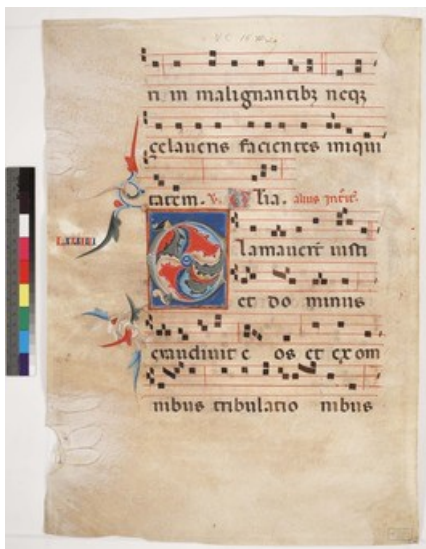 ri in malignantibȝ neqȝ
çelaveris facientes iniqui
tatem. V. Alia. alius introitꝰ.
lamaverūt iusti
et do minus
exaudivit e os et ex om
nibus tribulatio nibus